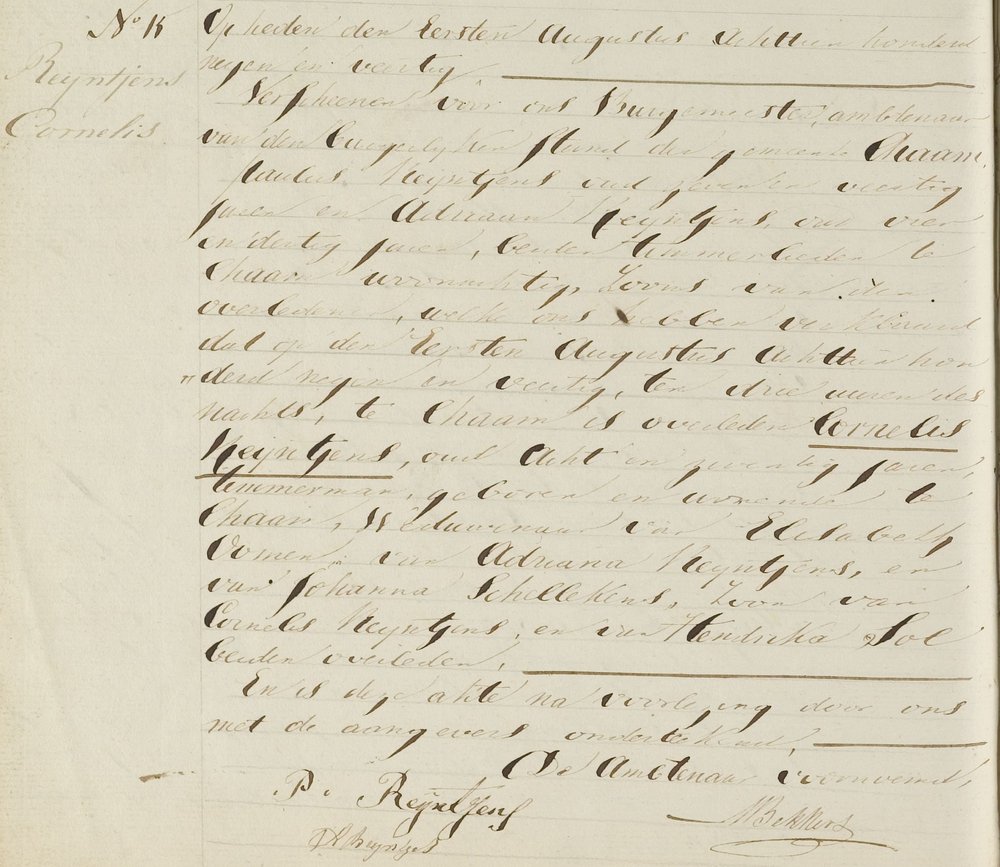 No 15
Reyntjens
Cornelis
Op heden den Eersten Augustus Achttien honderd
negen en veertig
Verscheenen voor ons Burgemeester, ambtenaar
van den burgerlyken stand der gemeente Chaam,
Paulus Reyntjens oud zeven en veertig
jaren en Adriaan Reyntjens, oud vier
en dertig jaren, beiden timmerlieden te
Chaam woonachtig, Zoons van den
overledenen, welke ons hebben verklaard
dat op den Eersten Augustus Achttien hon
derd negen en veertig, ten drie uuren des
nachts, te Chaam is overleden Cornelis
Reyntjens, oud Acht en zeventig jaren,
timmerman, geboren en wonende te
Chaam, Weduwenaar van Elisabeth
Oomen, van Adriana Reyntjens, en
van Johanna Schellekens, Zoon van
Cornelis Reyntjens, en van Hendrika Sol
beiden overleden.
En is deze akte na voorlezing door ons
met de aangevers onderteekend.
De Ambtenaar voornoemd,
P. Reijntjens
MBekkers
A Reyntjes